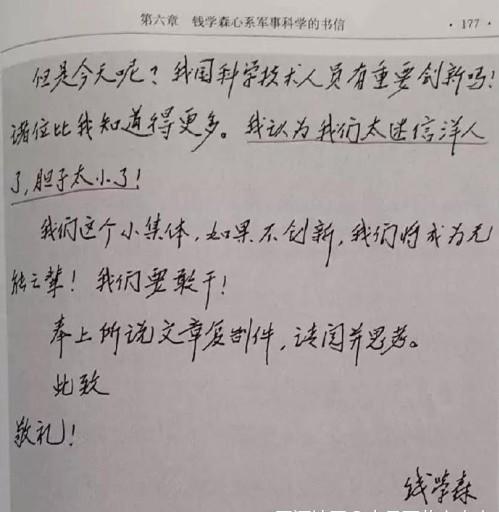 第六章　钱学森心系军事科学的书信　·177·
但是今天呢？我国科学技术人员有重要创新吗！
诸位比我知道得更多。我认为我们太迷信洋人
了，胆子太小了！
我们这个小集体，如果不创新，我们将成为无
能之辈！我们要敢干！
奉上所说文章复制件，请阅并思考。
此致
敬礼！
钱学森